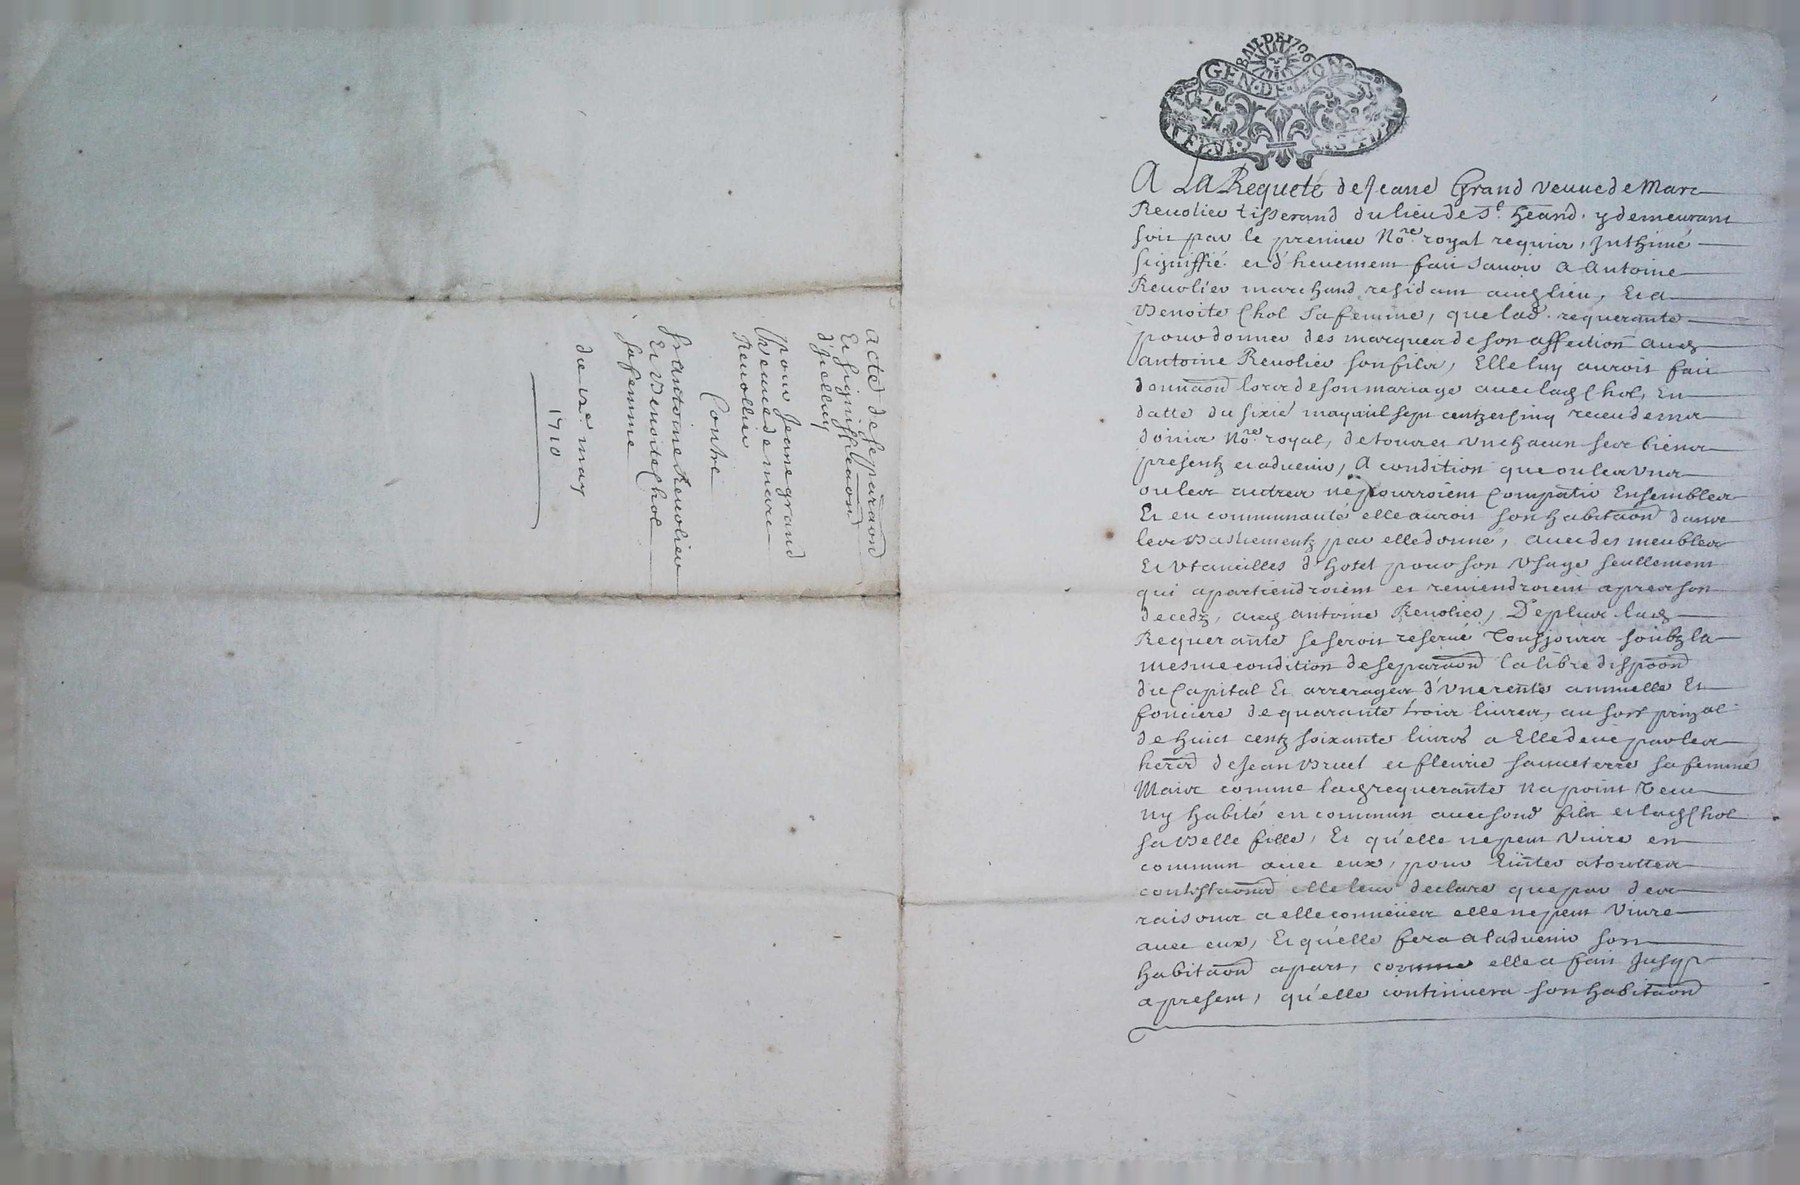 acte de separaõn
Et signiffica͠on
d'jcelluy
pour Jeanne grand
veuue de marc
Reuollier
Contre
Sr antoine Reuolier
Et Benoite Chol
sa femme
du 12e. may
1710
BAIL DE 1706
GEN · DE · LION
A La Requete de Jeane Grand veuue de Marc
Reuolier tisserand du lieu de St. heand. y demeurant
soit par le premier Nore. royal requier, Inthimé
signiffié et d'heuement fait sauoir a Antoine
Reuolier marchand residant audt lieu, Et a
Benoite Chol sa femme, que lad. requerante
pour donner des marques de son affection audt
antoine Reuolier son filz, Elle luy auroit fait
dona͠on lors de son mariage auec ladt Chol, En
datte du sixie may mil sept centz et cinq receu de me
Nore. royal, de toutes Vn chacun ses biens
presentz et aduenir, A condition que ou les Vns
ou les autres ne pourroient Compatir Ensembles
Et en communauté elle auroit son habita͠on dans
les bastiementz par elle donné, auec des meubles
Et Vtancilles d'hotel pour son Vsage seullement
qui apartiendroient et reuiendroient apres son
decedz, audt antoine Reuolier, De plus ladt
Requerante se seroit reserué Tousjours soubz la
mesme condition de separa͠on la libre dispo͠on
du Capital Et arrerages d'Vne rente annuelle Et
fonciere de quarante trois liures, au sort prinẑal
de huict centz soixante liures a Elle deue par les
hers de Jean Bruel et fleurie sauueterre sa femme
Mais comme ladt requerante Na point Vecu
ny habité en commun auec sond filz et ladt Chol
sa Belle fille, Et qu'elle ne peut Viure en
commun auec eux, pour Euiter a toutes
contesta͠ons elle leur declare que par des
raisons a elle connuës elle ne peut Viure
auec eux, Et qu'elle fera a laduenir son
habita͠on apart, comme elle a fait Jusqs
a present, qu'elle continuera son habita͠on